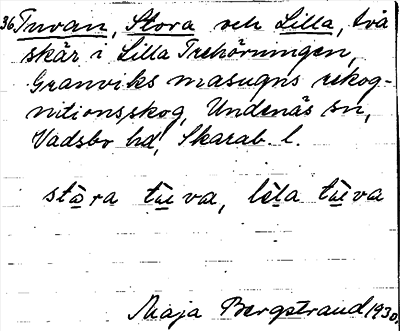 36 Tuvan, Stora och Lilla, två
skär i Lilla Trehörningen,
Granviks masugns rekog-
nitionsskog, Undenäs sn,
Vadsbo hd, Skarab. l.
stωra tʉva, lila tʉva
Maja Bergstrand 1930.